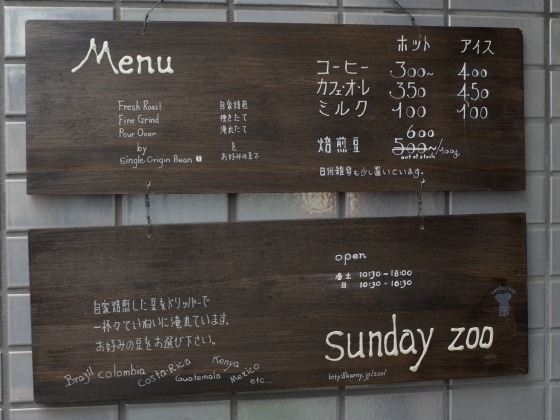 Menu
ホット アイス
コーヒー 300~ 400
カフェ・オ・レ 350 450
ミルク 100 100
600
焙煎豆 500~/100g
out of stock
日用雑貨も少し置いています。
Fresh Roast 自家焙煎
Fine Grind 挽きたて
Pour Over 淹れたて
by を
Single Origin Bean お好みの豆で
open
金土 10:30~18:00
日 10:30-16:30
自家焙煎した豆をドリッパーで
一杯々ていねいに淹れています。
お好みの豆をお選び下さい。
Brazil Colombia Costa-Rica Guatemala Kenya Mexico etc...
sunday zoo